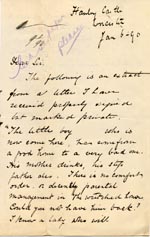 Hanley Castle
Worcester
Jan 6 - 90
Dear Sir
The following is an extract
from a letter I have
received properly signed
but marked private.
The little boy who is
now come here, has
from home to a very bad one.
His mother drinks, his step
father also. There is no comfort,
order, or decently parental
management in the wretched home
Could you not have him back?
I know a lady who will